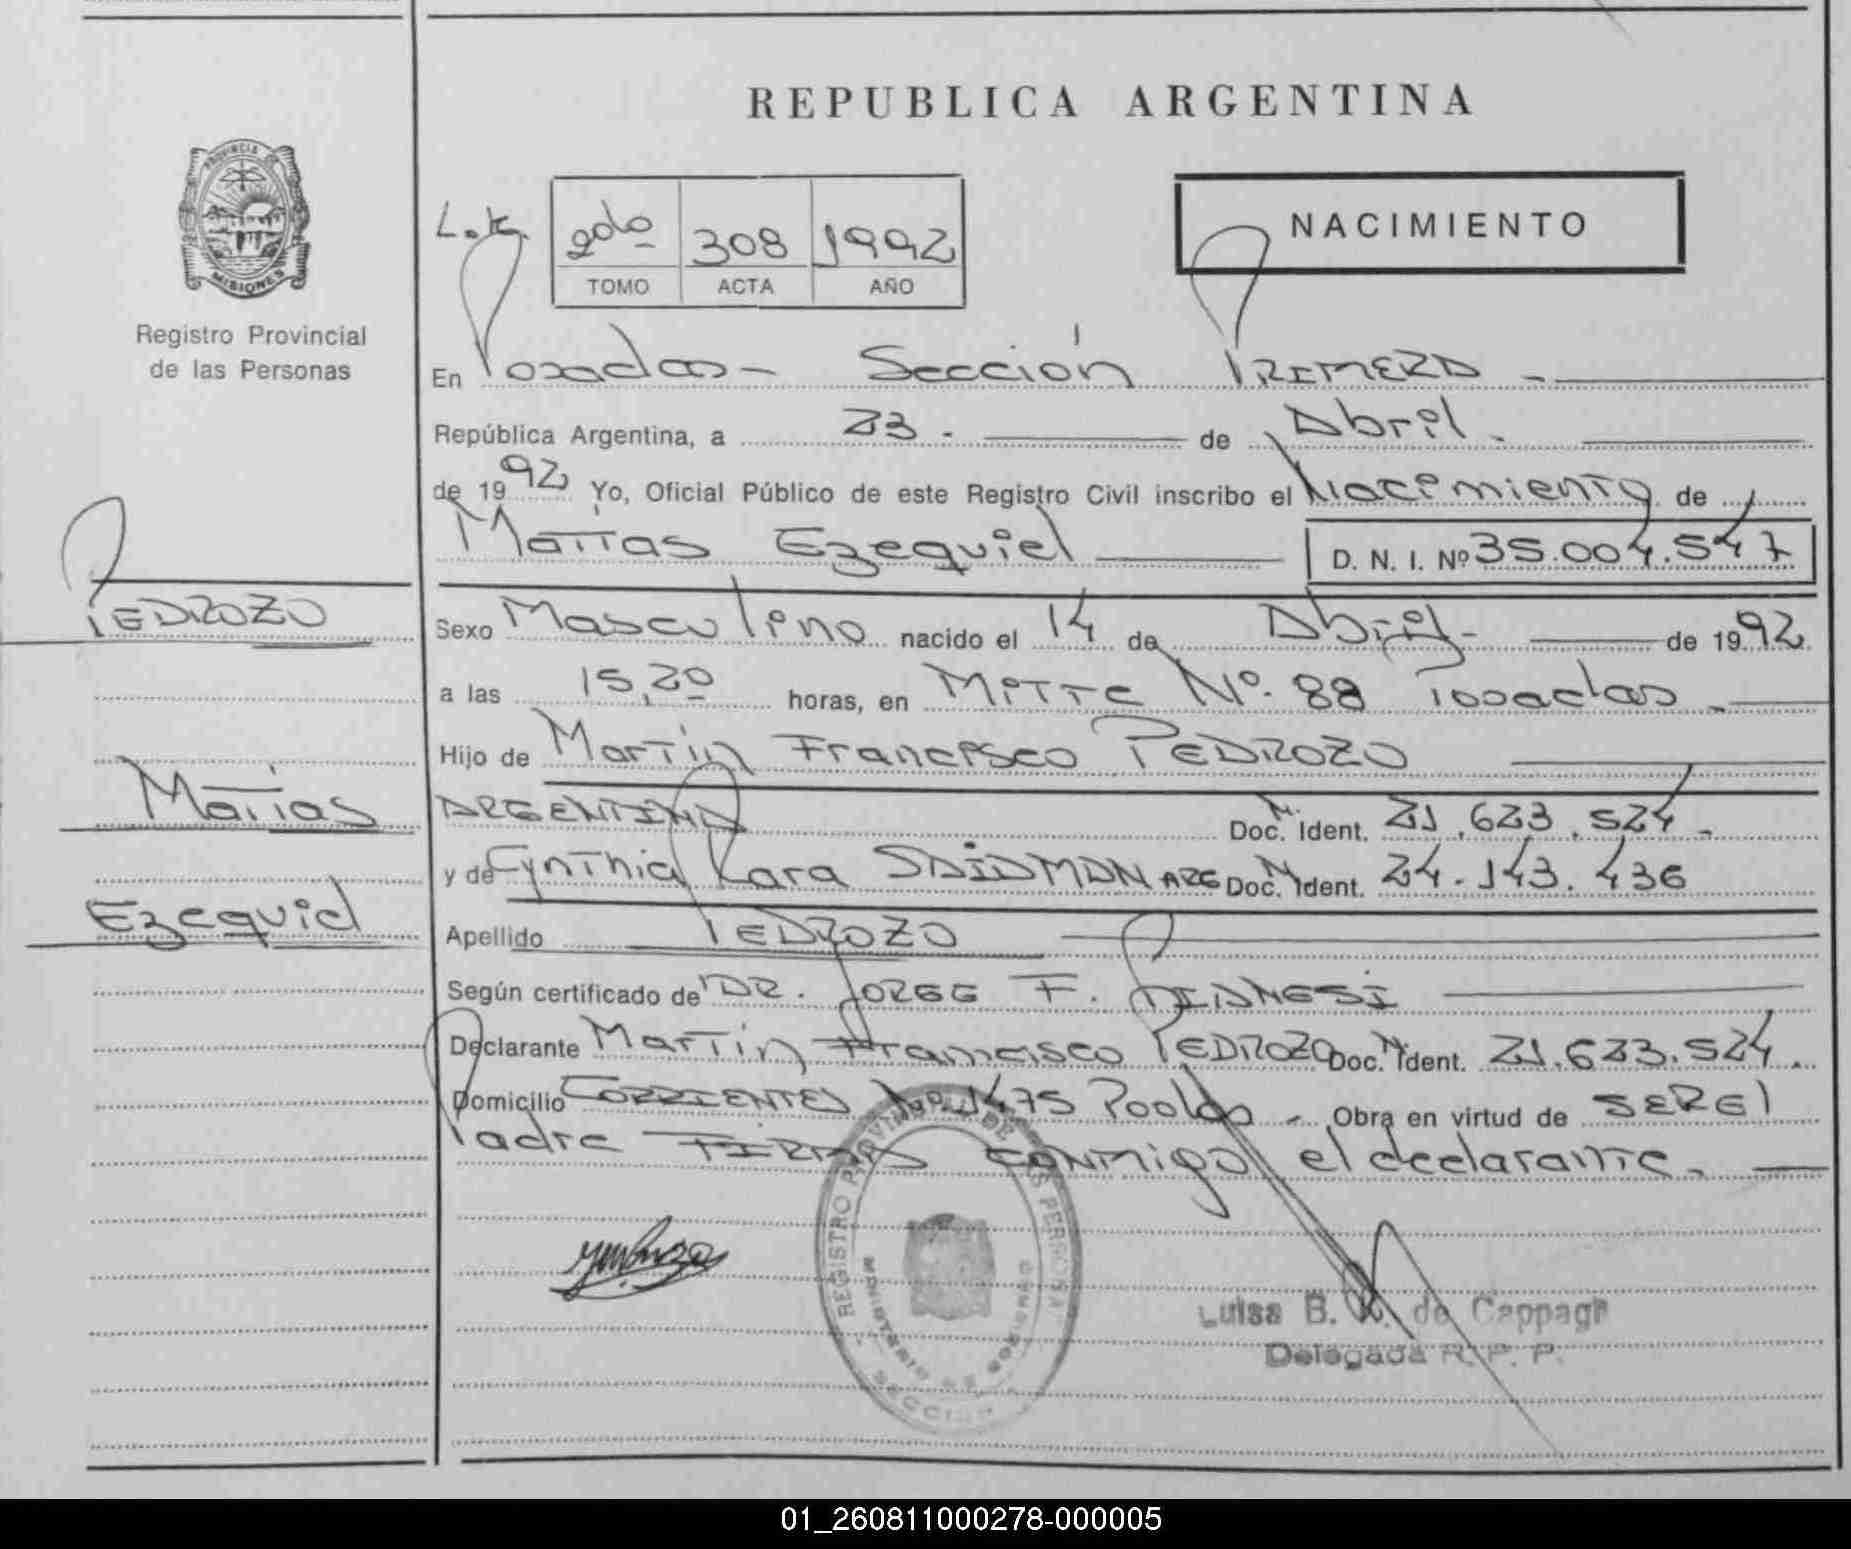 REPUBLICA ARGENTINA
PROVINCIA DE
MISIONES
Registro Provincial
de las Personas
L.k.
2do 308 1992
TOMO ACTA AÑO
NACIMIENTO
En Posadas - Sección PRIMERA -
República Argentina, a 23 - de Abril.
de 1992 Yo, Oficial Público de este Registro Civil inscribo el Nacimiento de
Matías Ezequiel D. N. I. Nº 35.004.547
PEDROZO
Matías
Ezequiel
Sexo Masculino nacido el 14 de Abril - de 1992
a las 15,20 horas, en Mitre Nº. 88 Posadas -
Hijo de Martín Francisco PEDROZO
ARGENTINA Doc. N. Ident. 21.623.524 -
y de Cynthia Kara SAIDMAN ARG Doc. N Ident. 24.143.436
Apellido PEDROZO
Según certificado de DR. JORGE F.
Declarante Martín Francisco PEDROZO Doc. N Ident. 21.623.524.
Domicilio CORRIENTES Nº 1475 - Obra en virtud de SER el
Padre FIRMA CONMigo el declarante.
REGISTRO PROVINCIAL DE LAS PERSONAS
MINISTERIO DE GOBIERNO
SECCION
Luisa B. de Cappagli
Delegada R. P. P.
01_260811000278-000005